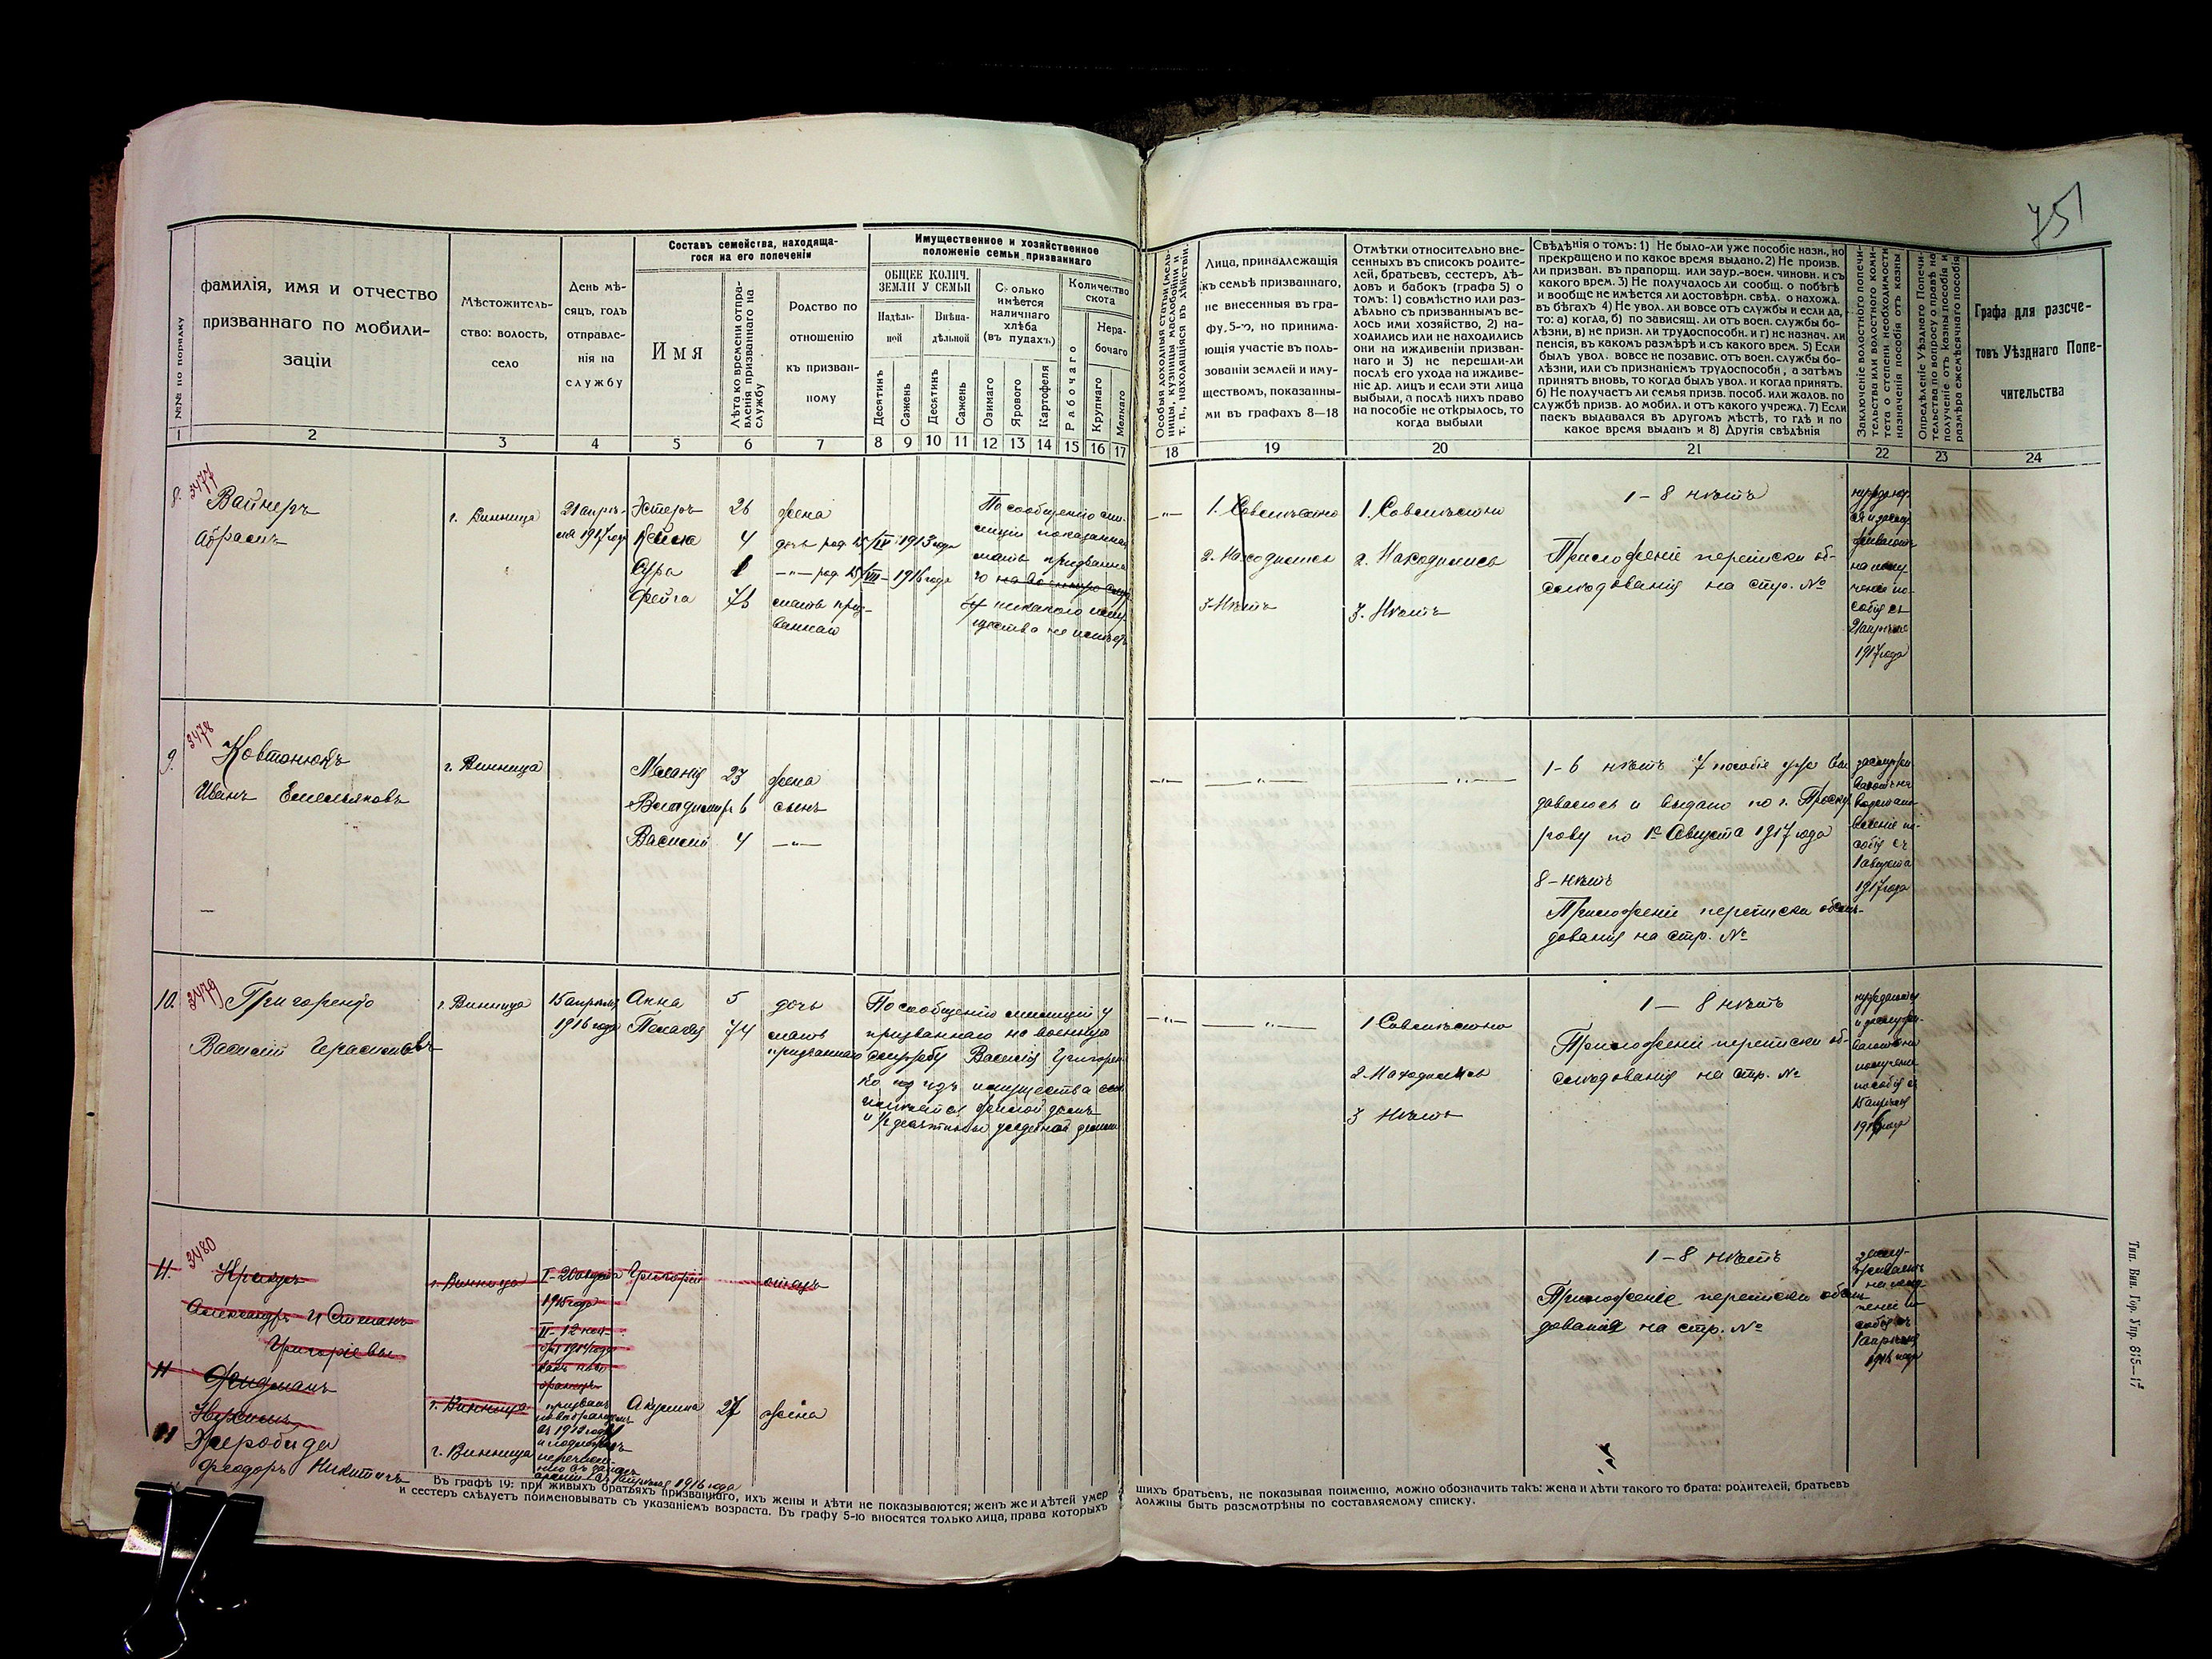 751
№№ по порядку
фамилія, имя и отчество
призваннаго по мобили-
заціи
Мѣстожитель-
ство: волость,
село
День мѣ-
сяцъ, годъ
отправле-
нія на
службу
Составъ семейства, находяща-
гося на его попеченіи
Имя
Лѣта ко времени отпра-
вленія призваннаго на
службу
Родство по
отношенію
къ призван-
ному
Имущественное и хозяйственное
положеніе семьи призваннаго
ОБЩЕЕ КОЛИЧ.
ЗЕМЛИ У СЕМЬИ
Надѣль-
ной
Внѣна-
дѣльной
Сколько
имѣется
наличнаго
хлѣба
(въ пудахъ)
Количество
скота
Нера-
бочаго
Десятинъ
Сажень
Десятинъ
Сажень
Озимаго
Ярового
Картофеля
Рабочаго
Крупнаго
Мелкаго
Особыя доходныя статьи (мель-
ницы, кузницы маслобойни и
т. п., находящіяся въ дѣйствіи.
Лица, принадлежащія
къ семьѣ призваннаго,
не внесенныя въ гра-
фу, 5-ю, но принима-
ющія участіе въ поль-
зованіи землей и иму-
ществомъ, показанны-
ми въ графахъ 8—18
Отмѣтки относительно вне-
сенныхъ въ списокъ родите-
лей, братьевъ, сестеръ, дѣ-
довъ и бабокъ (графа 5) о
томъ: 1) совмѣстно или раз-
дѣльно съ призваннымъ ве-
лось ими хозяйство, 2) на-
ходились или не находились
они на иждивеніи призван-
наго и 3) не перешли-ли
послѣ его ухода на иждиве-
ніе др. лицъ и если эти лица
выбыли, а послѣ нихъ право
на пособіе не открылось, то
когда выбыли
Свѣдѣнія о томъ: 1) Не было-ли уже пособіе назн., но
прекращено и по какое время выдано. 2) Не произв.
ли призван. въ прапорщ. или заур.-воен. чиновн. и съ
какого врем. 3) Не получалось ли сообщ. о побѣгѣ
и вообще не имѣется ли достовѣрн. свѣд. о нахожд.
въ бѣгахъ 4) Не увол. ли вовсе отъ службы и если да,
то: а) когда, б) по зависящ. ли отъ воен. службы бо-
лѣзни, в) не призн. ли трудоспособн. и г) не назнач. ли
пенсія, въ какомъ размѣрѣ и съ какого врем. 5) Если
былъ увол. вовсе не позавис. отъ воен. службы бо-
лѣзни, или съ признаніемъ трудоспособн, а затѣмъ
принятъ вновь, то когда былъ увол. и когда принятъ.
6) Не получаетъ ли семья призв. пособ. или жалов. по
службѣ призв. до мобил. и отъ какого учрежд. 7) Если
паекъ выдавался въ другомъ мѣстѣ, то гдѣ и по
какое время выданъ и 8) Другія свѣдѣнія
Заключеніе волостного попечи-
тельства или волостного коми-
тета о степени необходимости
назначенія пособія отъ казны
Опредѣленіе Уѣзднаго Попечи-
тельства по вопросу о правѣ на
полученіе отъ казны пособія и
размѣра ежемѣсячнаго пособія
Графа для разсче-
товъ Уѣзднаго Попе-
чительства
1 2 3 4 5 6 7 8 9 10 11 12 13 14 15 16 17 18 19 20 21 22 23 24
8. 3477
Вайнеръ
Абрамъ
г. Винница
21 апрѣ-
ля 1917 года
Эстеръ 26 жена
4 дочь род. 15/IV 1913 года
Сура 1 —"— род. 15/VIII—1916 года
Фейга 73 мать приз-
ваннаго
По сообщенію ми-
лиціи показанная
мать призванна-
го на военную служ
бу никакого иму-
щества не имѣетъ
—"—
1. Совмѣстно
2. Находились
3. Нѣтъ
1. Совмѣстно
2. Находились
3. Нѣтъ
1—8 нѣтъ
Приложеніе переписки об-
слѣдованія на стр. №
нуждает-
ся и заслу-
живаетъ
на полу-
ченіе по-
собія съ
21 апрѣля
1917 года
9. 3478
Ковтонюкъ
Иванъ Емельяновъ
г. Винница
Меланія 23 жена
Владимиръ 6 сынъ
Василій 4 —"—
—"— —"— —"—
1—6 нѣтъ 7 пособіе уже вы
давалось и выдано по г. Проску
рову по 1е Августа 1917 года
8—нѣтъ
Приложеніе переписки обслѣ-
дованія на стр. №
заслужи
ваетъ на
возстано-
вленіе по-
собія съ
1 августа
1917 года
10. 3479
Григоренко
Василій Герасимовъ
г. Винница
15 апрѣля
1916 года
Анна 5 дочь
Пелагія 74 мать
призваннаго
По сообщенію милиціи у
призваннаго на военную
службу Василія Григорен
ко имущества
жилой домъ
и 1/2 десятины усадебной земли
—"— —"—
1 Совмѣстно
2. Находились
3 Нѣтъ
1—8 нѣтъ
Приложеніе переписки об-
слѣдованія на стр. №
нуждается
и заслужи-
ваетъ на
полученіе
пособія съ
15 апрѣля
1916 года
11. 3480
Александръ и Степанъ
Григорьевы
г. Винница
1915 года
Григорій
отецъ
11
Фридманъ
г. Винница
11
Жеробида
Феодоръ Никитичъ
г. Винница
призванъ
Акулина 27 жена
1 апрѣля 1916 года
1—8 нѣтъ
Приложеніе переписки обслѣ-
дованія на стр. №
заслу-
живаетъ
на полу-
ченіе по-
собія съ
1 апрѣля
1916 года
Въ графѣ 19: при живыхъ братьяхъ призваннаго, ихъ жены и дѣти не показываются; женъ же и дѣтей умер
шихъ братьевъ, не показывая поименно, можно обозначить такъ: жена и дѣти такого то брата: родителей, братьевъ
и сестеръ слѣдуетъ поименовывать съ указаніемъ возраста. Въ графу 5-ю вносятся только лица, права которыхъ
должны быть разсмотрѣны по составляемому списку.
Тип. Вин. Гор. Упр. 815—17